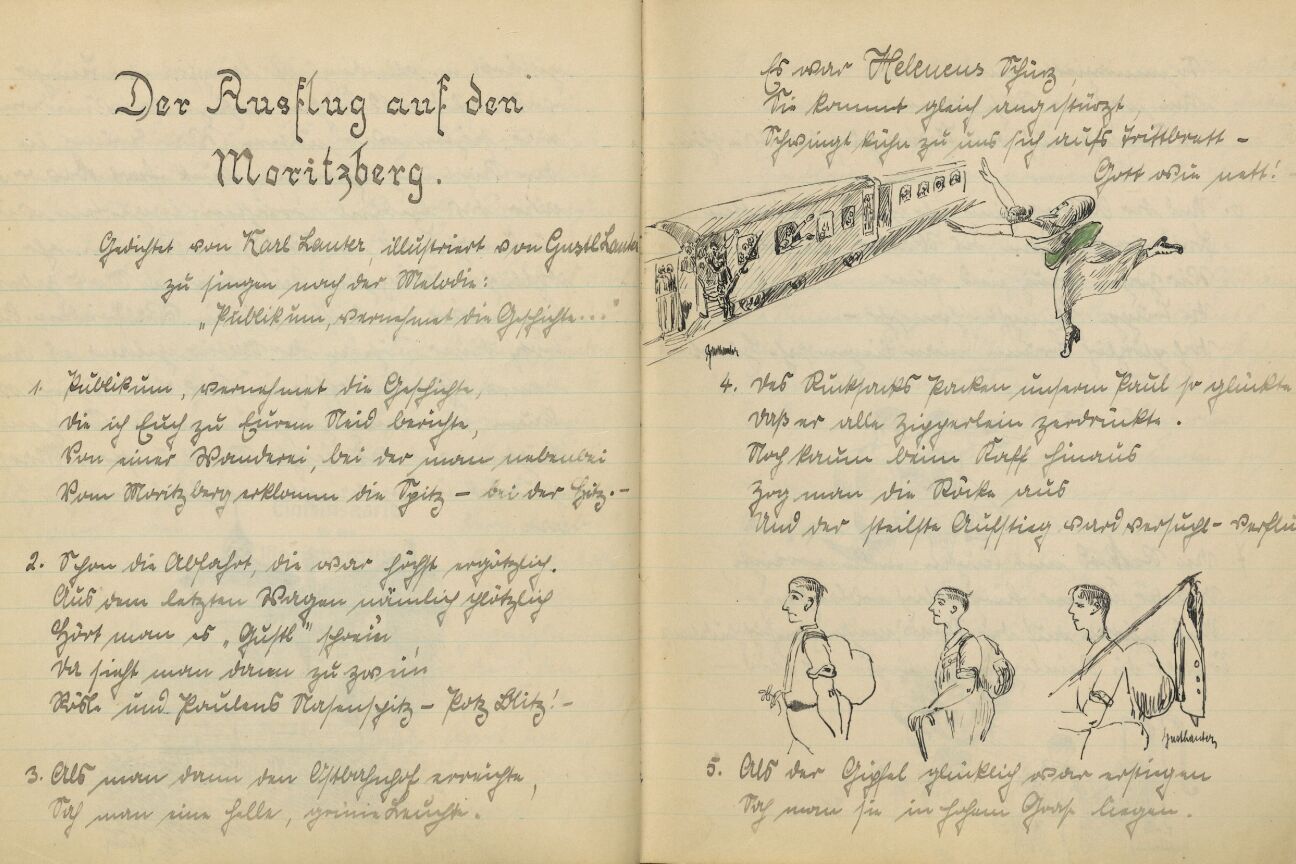 Der Ausflug auf den
Moritzberg.
Gedichtet von Karl Lauter, illustriert von Gustl Lauter
zu singen nach der Melodie:
„Publikum, vernehmet die Geschichte..."
1. Publikum, vernehmet die Geschichte,
die ich Euch zu Eurem Neid berichte,
Von einer Wanderei, bei der man nebenbei
Vom Moritzberg erklomm die Spitz – bei der Hitz. –
2. Schon die Abfahrt, die war höchst ergötzlich.
Aus dem letzten Wagen nämlich plötzlich
Hört man es „Gustl" schrein
Da sieht man dann zu zwei'n
Rösle und Paulens Nasenspitz – Potz Blitz! –
3. Als man dann den Ostbahnhof erreichte,
Sah man eine helle, grüne Leuchte.
Es war Helenens Schürz
Sie kommt gleich angestürzt
Schwingt kühn zu uns sich aufs Trittbrett –
Gott wie nett!
4. Des Rucksacks Packen unserm Paul so glückte
Daß er alle Zipperlein zerdrückte.
Noch kaum beim Kaff hinaus
Zog man die Röcke aus
Und der steilste Aufstieg ward versucht – verflu
5. Als der Gipfel glücklich war erstiegen
Sah man sie in hohem Grase liegen.